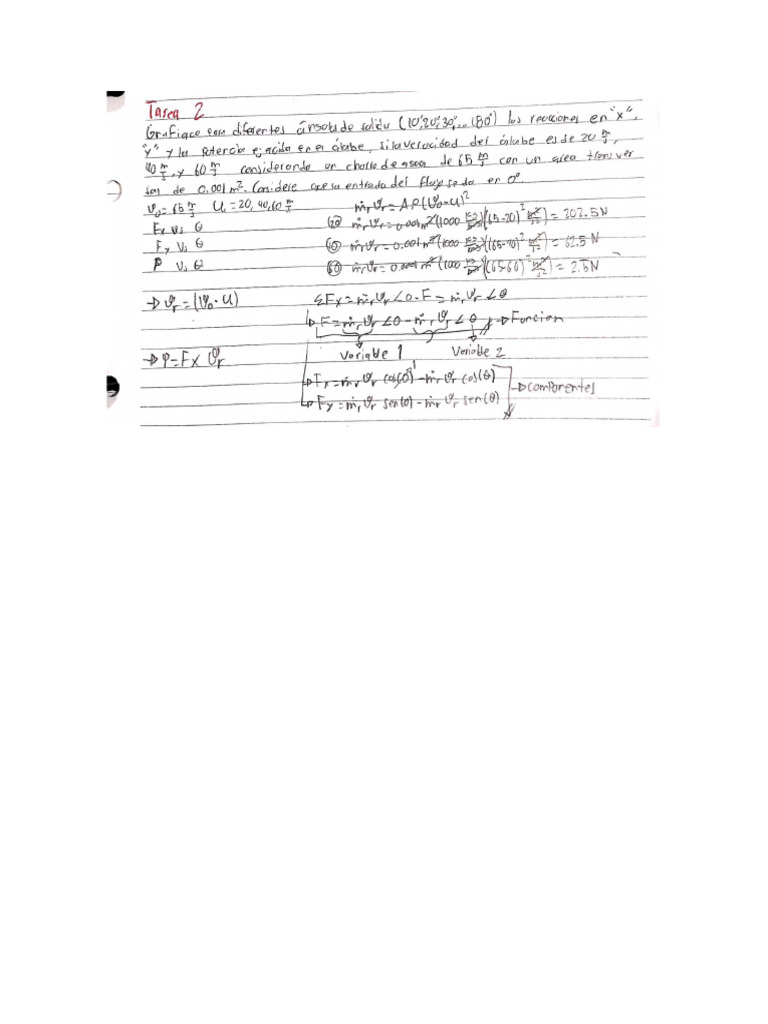 Tarea 2
Grafique con diferentes ángulos de salida (10°, 20°, 30°, ... 180°) las reacciones en "x",
"y" y la potencia ejercida en el álabe, si la velocidad del álabe es de 20 m/s,
40 m/s, y 60 m/s considerando un chorro de agua de 65 m/s con un area transver
sal de 0.001 m². Considere que la entrada del flujo se da en 0°.
v₀ = 65 m/s U = 20, 40, 60 m/s ṁᵣvᵣ = Aρ(v₀-u)²
Fx vs θ (20) ṁᵣvᵣ = 0.001 m² (1000 kg/m³)(65-20)² m²/s² = 202.5 N
Fy vs θ (40) ṁᵣvᵣ = 0.001 m² (1000 kg/m³)(65-40)² m²/s² = 62.5 N
P vs θ (60) ṁᵣvᵣ = 0.001 m² (1000 kg/m³)(65-60)² m²/s² = 2.5 N
→ vᵣ = (v₀ - u) ΣFx = ṁᵣvᵣ∠0 - F = ṁᵣvᵣ∠θ
F = ṁᵣvᵣ∠0 - ṁᵣvᵣ∠θ → Funcion
→ P = Fx vᵣ Variable 1 Variable 2
Fx = ṁᵣvᵣ cos(0) - ṁᵣvᵣ cos(θ) → componentes
Fy = ṁᵣvᵣ sen(0) - ṁᵣvᵣ sen(θ)